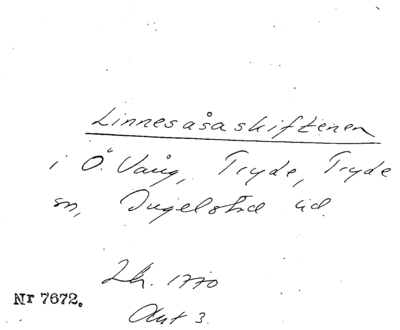 Linnesåsaskiftenen
i Ö. Vång, Tryde, Tryde
sn, Ingelstad hd.
Lh. 1770
Akt 3.
Nr 7672.